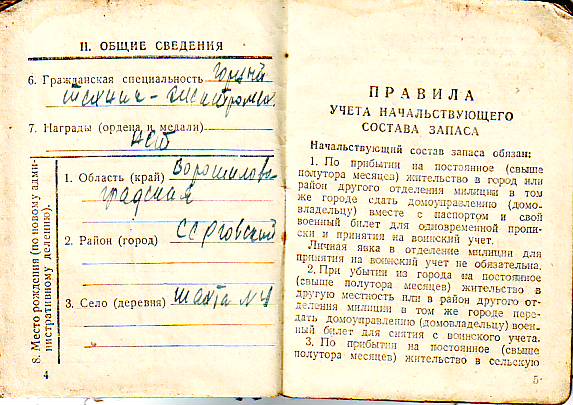 II. ОБЩИЕ СВЕДЕНИЯ
6. Гражданская специальность горный
техник-электромех.
7. Награды (ордена и медали)
нет
8. Место рождения (по новому адми-
нистративному делению).
1. Область (край) Ворошилов
градская
2. Район (город)
3. Село (деревня) шахта №
4
ПРАВИЛА
УЧЕТА НАЧАЛЬСТВУЮЩЕГО
СОСТАВА ЗАПАСА
Начальствующий состав запаса обязан:
1. По прибытии на постоянное (свыше
полутора месяцев) жительство в город или
район другого отделения милиции в том
же городе сдать домоуправлению (домо-
владельцу) вместе с паспортом и свой
военный билет для одновременной пропи-
ски и принятия на воинский учет.
Личная явка в отделение милиции для
принятия на воинский учет не обязательна.
2. При убытии из города на постоянное
(свыше полутора месяцев) жительство в
другую местность или в район другого от-
деления милиции в том же городе пере-
дать домоуправлению (домовладельцу) воен-
ный билет для снятия с воинского учета.
3. По прибытии на постоянное (свыше
полутора месяцев) жительство в сельскую
5